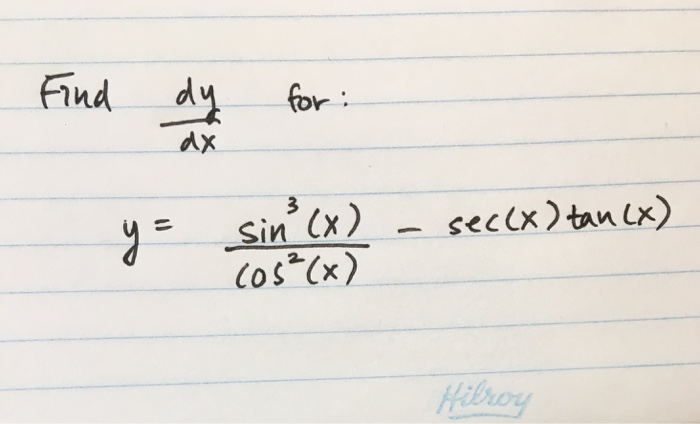 Find dy/dx for:
y = sin³(x)/cos²(x) - sec(x)tan(x)
Hilroy